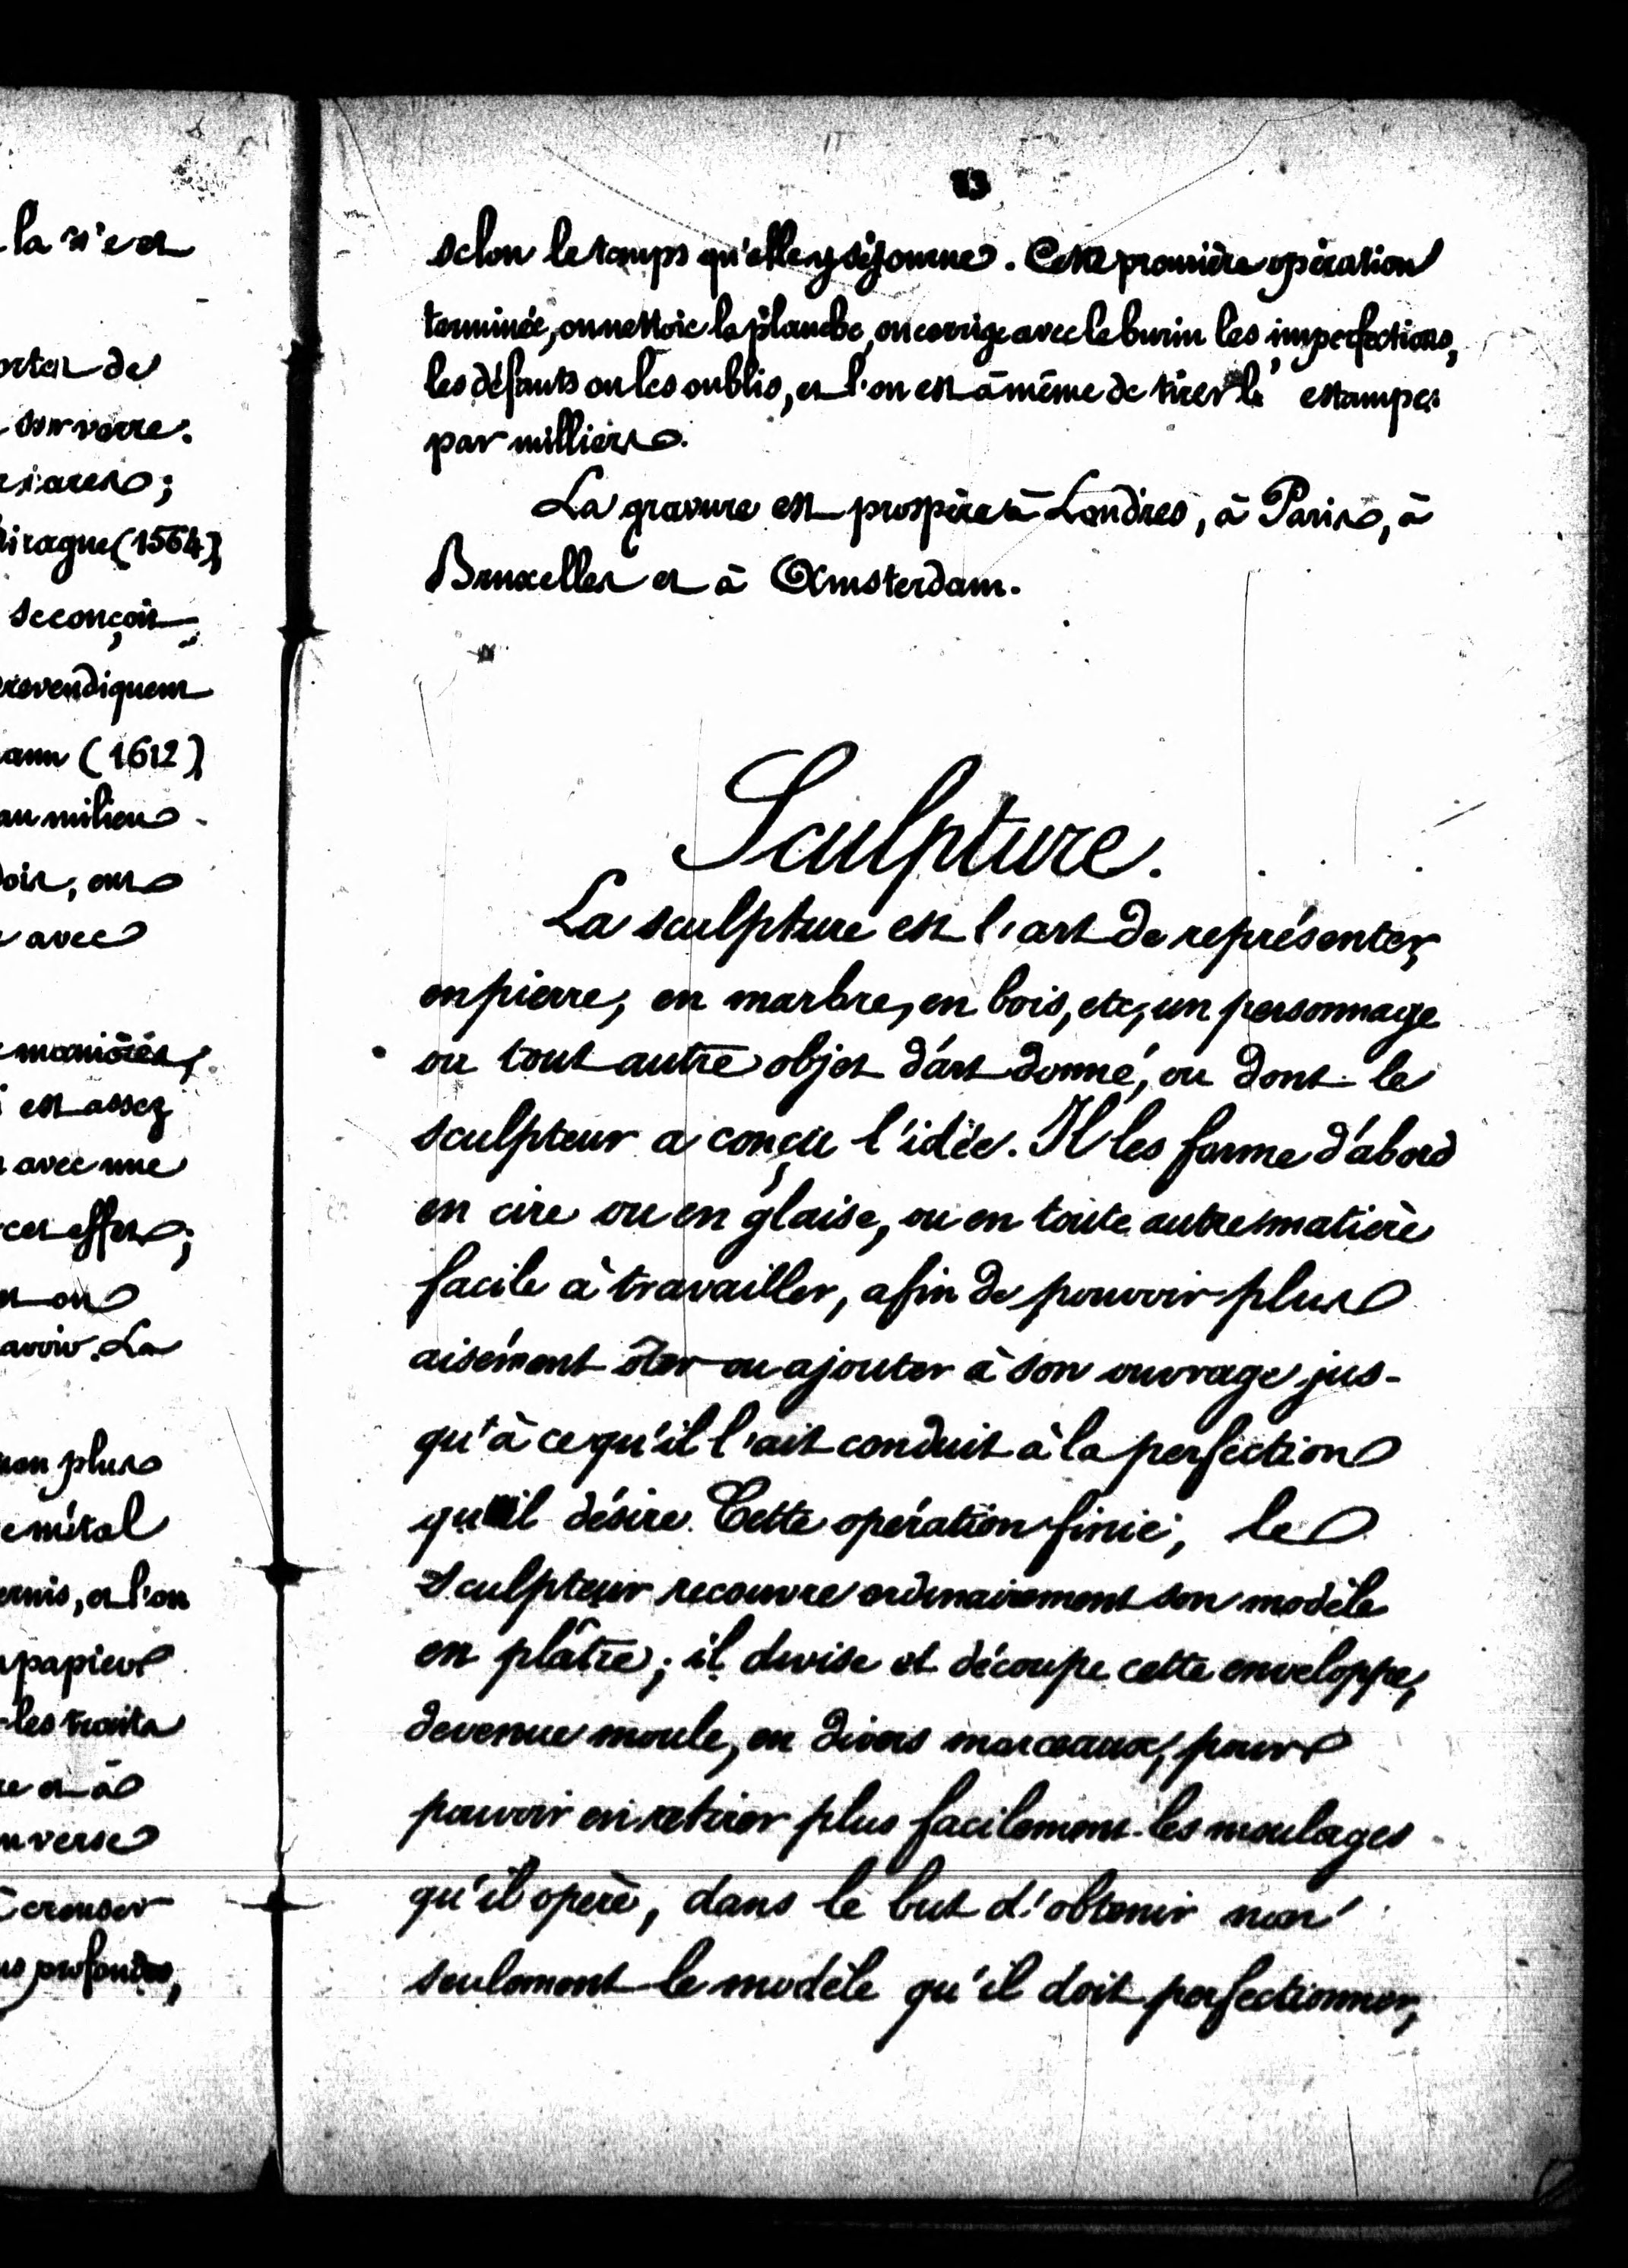 la n'est
de
sur verre.
(1564),
se conçoit
revendiquent
(1612)
au milieu
avec
est assez
avec une
ces effets;
La
non plus
métal
et l'on
papier
les traits
et à
verse
creuser
profondes,
selon le temps qu'elle y séjourne. Cette première opération
terminée, on nettoie la planche, on corrige avec le burin les imperfections,
les défauts ou les oublis, et l'on est à même de tirer estampes
par milliers.
La gravure est prospère à Londres, à Paris, à
Bruxelles et à Amsterdam.
Sculpture.
La sculpture est l'art de représenter,
en pierre, en marbre, en bois, etc, un personnage
ou tout autre objet d'art donné, ou dont le
sculpteur a conçu l'idée. Il les forme d'abord
en cire ou en glaise, ou en toute autre matière
facile à travailler, afin de pouvoir plus
aisément ôter ou ajouter à son ouvrage jus-
qu'à ce qu'il l'ait conduit à la perfection
qu'il désire. Cette opération finie, le
sculpteur recouvre ordinairement son modèle
en plâtre; il divise et découpe cette enveloppe,
devenue moule, en divers morceaux, pour
pouvoir en retirer plus facilement les moulages
qu'il opère, dans le but d'obtenir non
seulement le modèle qu'il doit perfectionner,